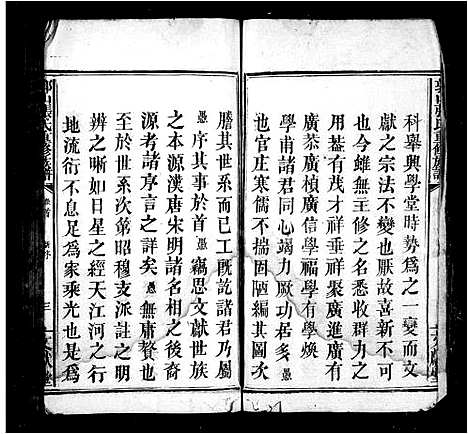 科舉興學堂時勢為之一變而文
獻之宗法不變也厥故喜新不忘
也今雖無主修之名義收群力之
用蓋有茂才祥垂祥聚廣進廣有
廣恭廣楨廣信學福學有學煥
學甫諸君同心踴力厥功居多愚
也官庄寒儒不揣固陋編其圖次
謄其世系而已工既訖諸君乃屬
愚序其事於首愚竊思文獻世族
之本源漢唐宋明諸名相之後裔
源考諸序言之詳矣愚無庸贅也
至於世次次第昭穆支派註述
辨之晰如日星之經天江河之行
地流行不息足為家乘光也是為